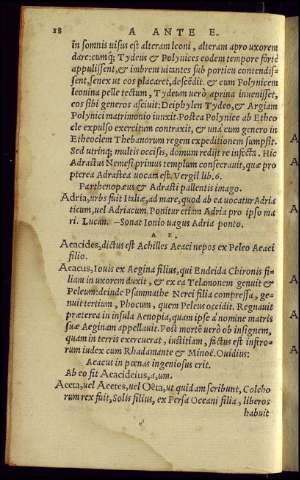 18 A ANTE E.
in somnis uisus est alteram leoni, alteram apro uxorem
dare: cumq́; Tydeus & Polynices eodem tempore fortè
appulissent, & imbrem uitantes sub porticu contendis-
sent, senex ut eos placaret, descẽdit. & cum Polynicem
leonina pelle tectum, Tydeum uerò aprina inuenisset,
eos sibi generos asciuit: Deiphylen Tydeo, & Argiam
Polynici matrimonio iunxit. Postea Polynice ab Etheo
cle expulso exercitum contraxit, & unà cum genero in
Etheoclem Thebanorum regem expeditionem sumpsit.
Sed utrinq; multis occisis, domum redijt re infecta. Hic
Adrastus Nemesi primus templum consecrauit, quæ pro
pterea Adrastea uocata est. Vergil. lib. 6.
Parthenopæus & Adrasti pallentis imago.
Adria, urbs fuit Italiæ, ad mare, quod ab ea uocatur Adria
ticum, uel Adriacum. Ponitur etiam Adria pro ipso ma
ri. Lucan. –Sonat Ionio uagus Adria ponto.
A E.
Aeacides, dictus est Achilles Aeaci nepos ex Peleo Aeaci
filio.
Aeacus, Iouis ex Aegina filius, qui Endeida Chironis fi-
liam in uxorem duxit, & ex ea Telamonem genuit &
Peleum: deinde Psammathe Nerei filia compressa, ge-
nuit tertium, Phocum, quem Peleus occidit. Regnauit
præterea in insula Aenopia, quam ipse à nomine matris
suæ Aeginam appellauit. Post mortē uerò ob insignem,
quam in terris exercuerat, iustitiam, factus est infero-
rum iudex cum Rhadamante & Minoë. Ouidius:
Aeacus in pœnas ingeniosus erit.
Ab eo fit Aeacideius, a, um.
Aeeta, uel Aeetes, uel Oëta, ut quidam scribunt, Colcho
rum rex fuit, Solis filius, ex Persa Oceani filia, liberos
habuit